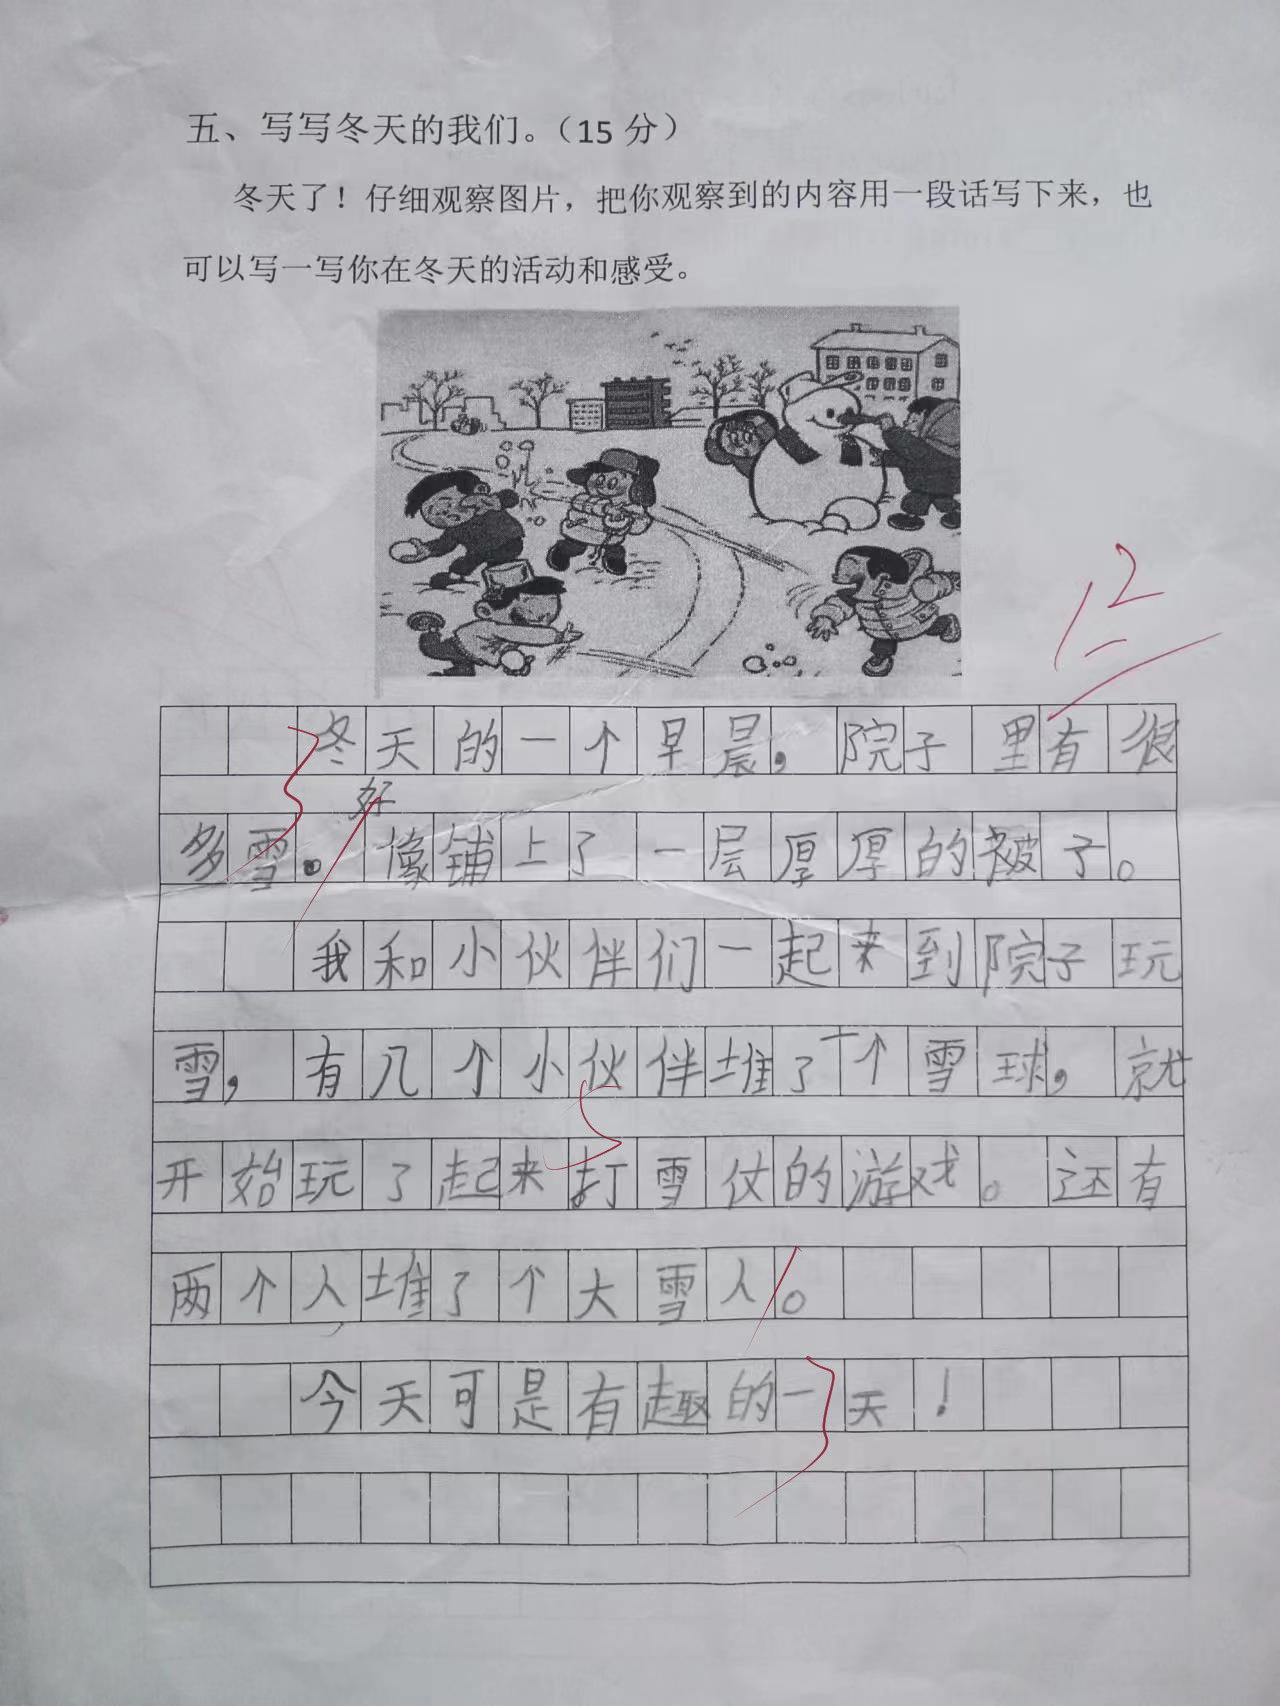 五、写写冬天的我们。（15 分）
冬天了！仔细观察图片，把你观察到的内容用一段话写下来，也
可以写一写你在冬天的活动和感受。
12
冬天的一个早晨，院子里有很
好
多雪。像铺上了一层厚厚的被子。
我和小伙伴们一起来到院子玩
雪，有几个小伙伴堆了一个雪球，就
开始玩了起来打雪仗的游戏。还有
两个人堆了个大雪人。
今天可是有趣的一天！